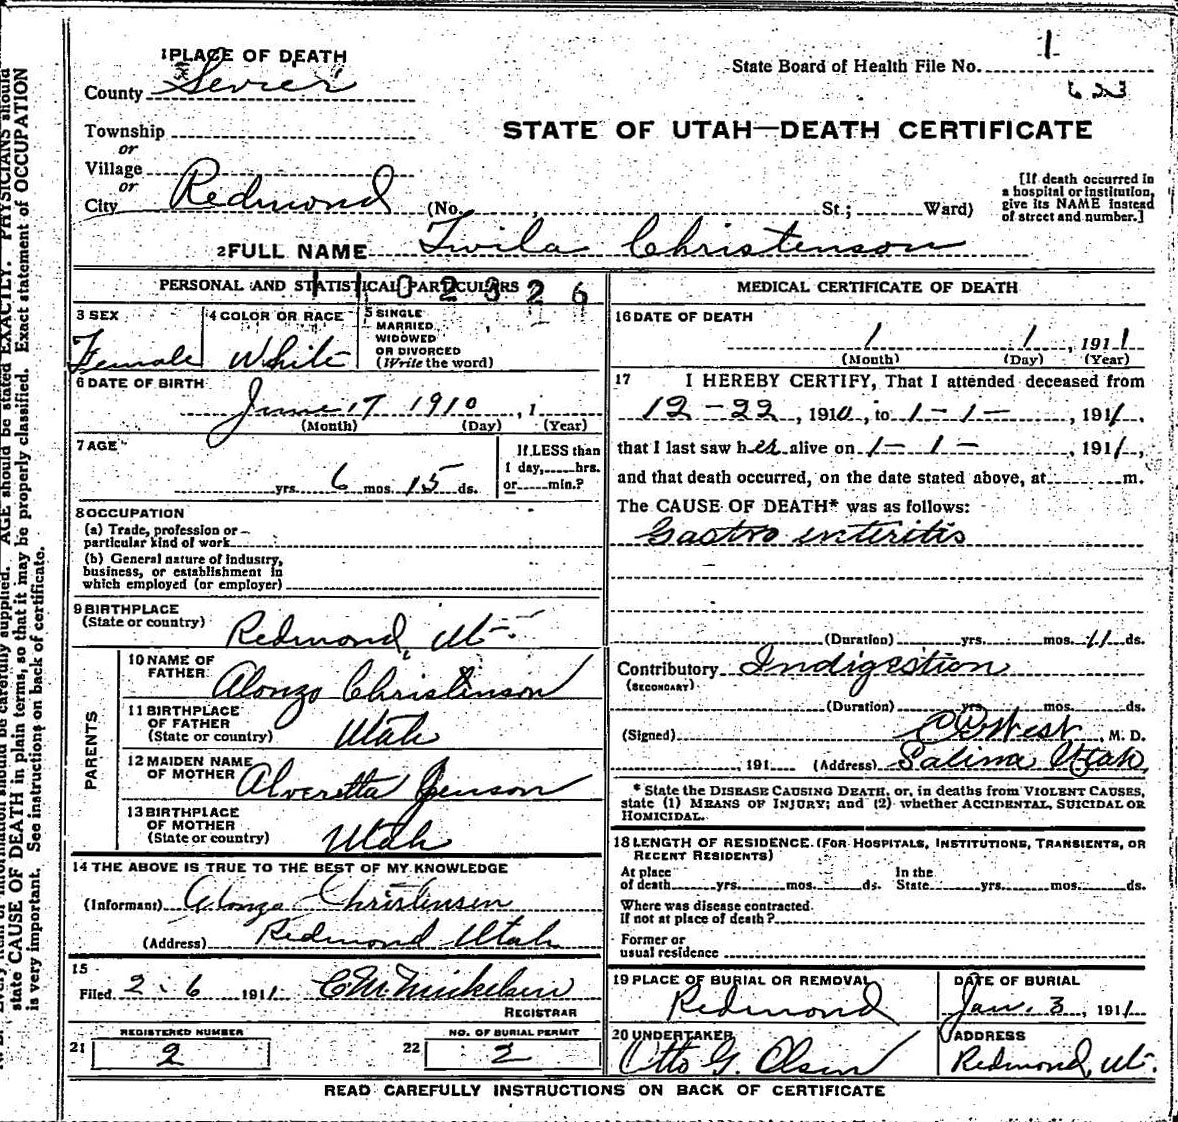 1 PLACE OF DEATH
County Sevier
Township
or
Village
or
City Redmond (No. , St.; Ward)
State Board of Health File No. 1
623
STATE OF UTAH—DEATH CERTIFICATE
[If death occurred in
a hospital or institution,
give its NAME instead
of street and number.]
2 FULL NAME Twila Christenson
PERSONAL AND STATISTICAL PARTICULARS
1102326
3 SEX
Female
4 COLOR OR RACE
White
5 SINGLE
MARRIED
WIDOWED
OR DIVORCED
(Write the word)
6 DATE OF BIRTH
June 17 1910, 1
(Month) (Day) (Year)
7 AGE
yrs. 6 mos. 15 ds.
If LESS than
1 day, hrs.
or min.?
8 OCCUPATION
(a) Trade, profession or
particular kind of work
(b) General nature of industry,
business, or establishment in
which employed (or employer)
9 BIRTHPLACE
(State or country)
Redmond, Ut.
PARENTS
10 NAME OF
FATHER
Alonzo Christenson
11 BIRTHPLACE
OF FATHER
(State or country)
Utah
12 MAIDEN NAME
OF MOTHER
Alveretta Jenson
13 BIRTHPLACE
OF MOTHER
(State or country)
Utah
14 THE ABOVE IS TRUE TO THE BEST OF MY KNOWLEDGE
(Informant) Alonzo Christensen
(Address) Redmond Utah
15
Filed 2-6 1911 C M Mickelsen
REGISTRAR
REGISTERED NUMBER
21 2
NO. OF BURIAL PERMIT
22 2
MEDICAL CERTIFICATE OF DEATH
16 DATE OF DEATH
1 1, 1911
(Month) (Day) (Year)
17 I HEREBY CERTIFY, That I attended deceased from
12-22, 1910, to 1-1-, 1911,
that I last saw her alive on 1-1-, 1911,
and that death occurred, on the date stated above, at m.
The CAUSE OF DEATH* was as follows:
Gastro enteritis
(Duration) yrs. mos. 11 ds.
Contributory Indigestion
(SECONDARY)
(Duration) yrs. mos. ds.
(Signed) West, M. D.
, 191 (Address) Salina Utah
* State the DISEASE CAUSING DEATH, or, in deaths from VIOLENT CAUSES,
state (1) MEANS OF INJURY; and (2) whether ACCIDENTAL, SUICIDAL OR
HOMICIDAL.
18 LENGTH OF RESIDENCE (FOR HOSPITALS, INSTITUTIONS, TRANSIENTS, OR
RECENT RESIDENTS)
At place
of death yrs. mos. ds.
In the
State yrs. mos. ds.
Where was disease contracted
If not at place of death?
Former or
usual residence
19 PLACE OF BURIAL OR REMOVAL
Redmond
DATE OF BURIAL
Jan. 3, 1911
20 UNDERTAKER
Otto G. Olsen
ADDRESS
Redmond, Ut.
READ CAREFULLY INSTRUCTIONS ON BACK OF CERTIFICATE
AGE should be stated EXACTLY. PHYSICIANS should
state CAUSE OF DEATH in plain terms, so that it may be properly classified. Exact statement of OCCUPATION
is very important. See instructions on back of certificate.